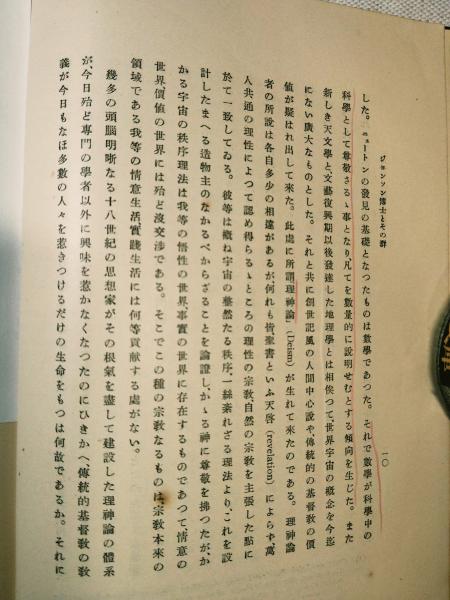 ジョンソン博士とその群
一〇
した。ニュートンの發見の基礎となつたものは數學であつた。それで數學が科學中の
科學として尊敬さるゝ事となり、凡てを數量的に說明せむとする傾向を生じた。また
新しき天文學と、文藝復興期以後發達した地理學とは相俟つて世界宇宙の概念を今迄
にない廣大なものとした。それと共に創世記風の人間中心說や傳統的の基督敎の價
値が疑はれ出して來た。此處に所謂理神論(Deism)が生れて來たのである。理神論
者の所說は各自多少の相違があるが何れも皆聖書といふ天啓(revelation)によらず、萬
人共通の理性によつて認め得らるゝところの理性の宗敎、自然の宗敎を主張した點に
於て一致してゐる。彼等は槪ね宇宙の整然たる秩序、一絲紊れざる理法より、これを設
計したまへる造物主のなかるべからざることを論證し、かゝる神に尊敬を拂つたが、か
かる宇宙の秩序理法は我等の悟性の世界、事實の世界に存在するものであつて、情意の
世界、價値の世界には殆ど沒交渉である。そこでこの種の宗敎なるものは、宗敎本來の
領域である我等の情意生活、實踐生活には何等貢獻する處がない。
幾多の頭腦明晰なる十八世紀の思想家がその根氣を盡して建設した理神論の體系
が、今日殆ど專門の學者以外に興味を惹かなくなつたのにひきかへ、傳統的基督敎の敎
義が今日もなほ多數の人々を惹きつけるだけの生命をもつは何故であるか。それに